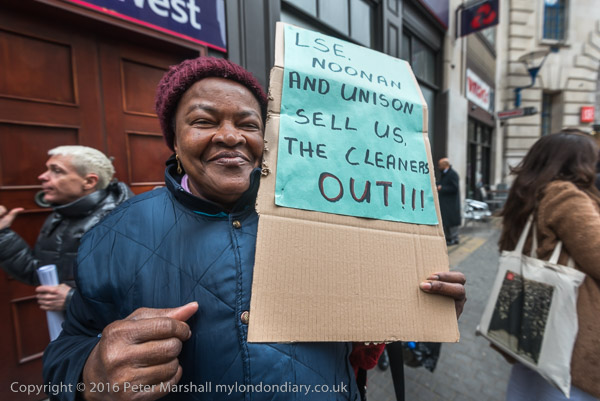 West
LSE.
NOONAN
AND UNISON
SELL US,
THE CLEANERS
OUT!!!
Copyright © 2016 Peter Marshall mylondondiary.co.uk